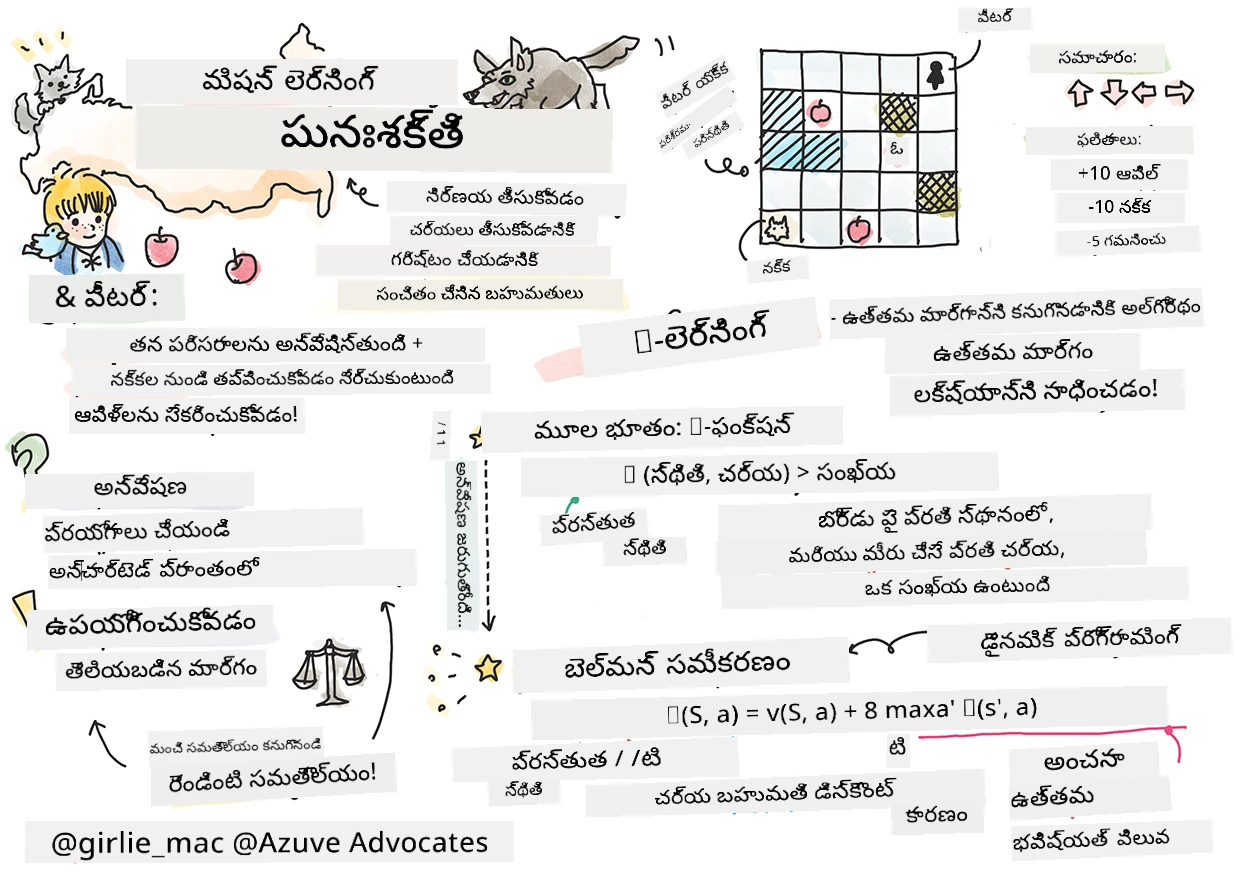 మిషన్ లెర్నింగ్
పునఃశక్తి
నిర్ణయ తీసుకోవడం
చర్యలు తీసుకోవడానికి
గరిష్టం చేయడానికి
సంచితం చేసిన బహుమతులు
& పీటర్:
తన పరిసరాలను అన్వేషిస్తుంది +
నక్కల నుండి తప్పించుకోవడం నేర్చుకుంటుంది
ఆపిళ్లను సేకరించుకోవడం!
అన్వేషణ
ప్రయోగాలు చేయండి
అన్‌చార్టెడ్ ప్రాంతంలో
ఉపయోగించుకోవడం
తెలియబడిన మార్గం
మంచి సమతౌల్యం కనుగొనండి
రెండింటి సమతౌల్యం!
@girlie_mac @Azuve Advocates
పీటర్
పీటర్ యొక్క
పరిసరము-
పరిస్థితి
ఓ
నక్క
సమాచారం:
ఫలితాలు:
+10 ఆపిల్
-10 నక్క
-5 గమనించు
-లెర్నింగ్
- ఉత్తమ మార్గాన్ని కనుగొనడానికి అల్గోరిథం
ఉత్తమ మార్గం
లక్ష్యాన్ని సాధించడం!
మూల భూతం: -ఫంక్షన్
(స్థితి, చర్య) > సంఖ్య
ప్రస్తుత
స్థితి
బోర్డు పై ప్రతి స్థానంలో,
మరియు మీరు చేసే ప్రతి చర్య,
ఒక సంఖ్య ఉంటుంది
బెల్మన్ సమీకరణం
డైనమిక్ ప్రోగ్రామింగ్
(S, a) = v(S, a) + 8 maxa' (s', a)
ప్రస్తుత / /టి
స్థితి
చర్య బహుమతి డిస్కౌంట్
టి
కారణం
అంచనా
ఉత్తమ
భవిష్యత్ విలువ